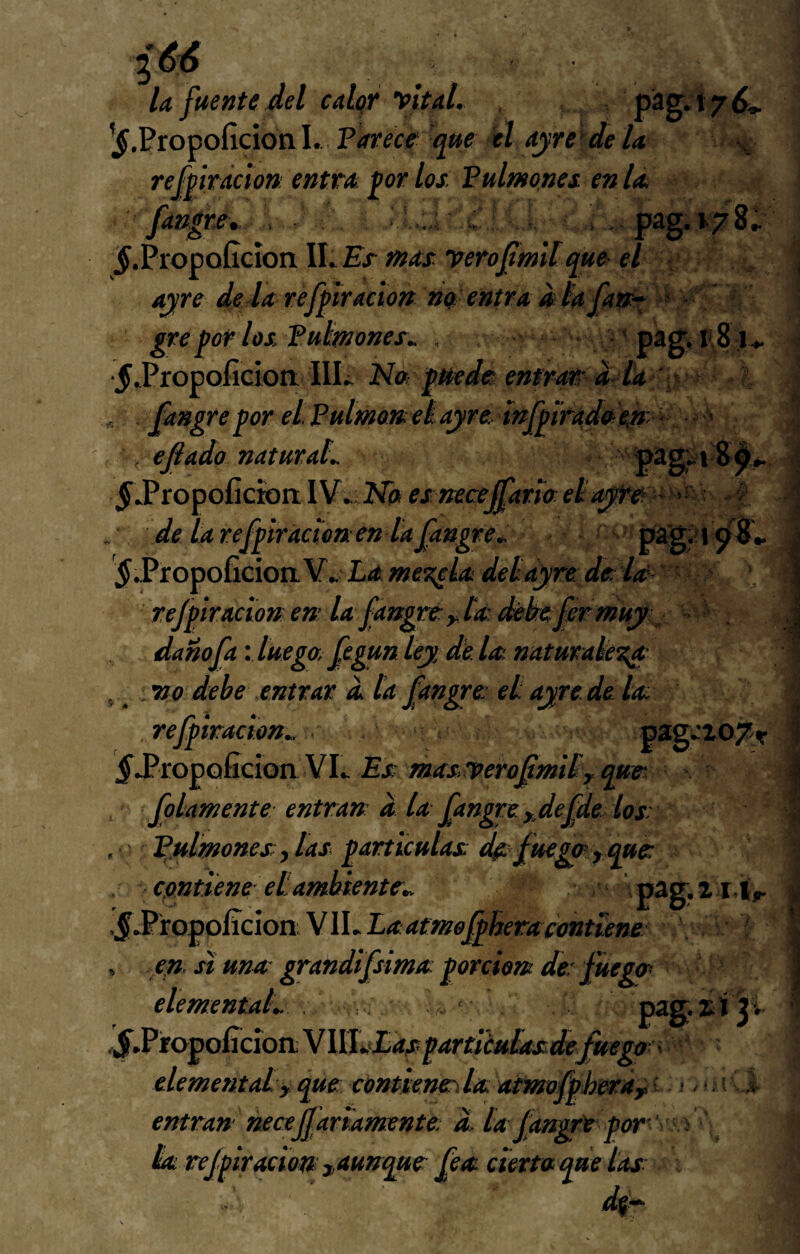 366
la fuente del calor vital. pag. 176.
§. Proposicion I. Parece que el ayre de la
respiracion entra por los Pulmones en la
sangre. pag. 178.
§. Proposicion II. Es mas verosimil que el
ayre de la respiracion no entra à la san-
gre por los Pulmones. pag. 181.
§. Proposicion III. No puede entrar à la
sangre por el Pulmon el ayre inspirado en
estado natural. pag. 189.
§. Proposicion IV. No es necessario el ayre
de la respiracion en la sangre. pag. 198.
§. Proposicion V. La mezcla del ayre de la
respiracion en la sangre, la debe ser muy
dañosa: luego, segun ley de la naturaleza
no debe entrar à la sangre el ayre de la
respiracion. pag. 207.
§. Proposicion VI. Es mas verosimil, que
solamente entran à la sangre, desde los
Pulmones, las particulas de fuego, que
contiene el ambiente. pag. 211.
§. Proposicion VII. La atmosphera contiene
en sì una grandissima porcion de fuego
elemental. pag. 213.
§. Proposicion VIII. Las particulas de fuego
elemental, que contiene la atmosphera,
entran necessariamente à la sangre por
la respiracion, aunque sea cierto que las
de-